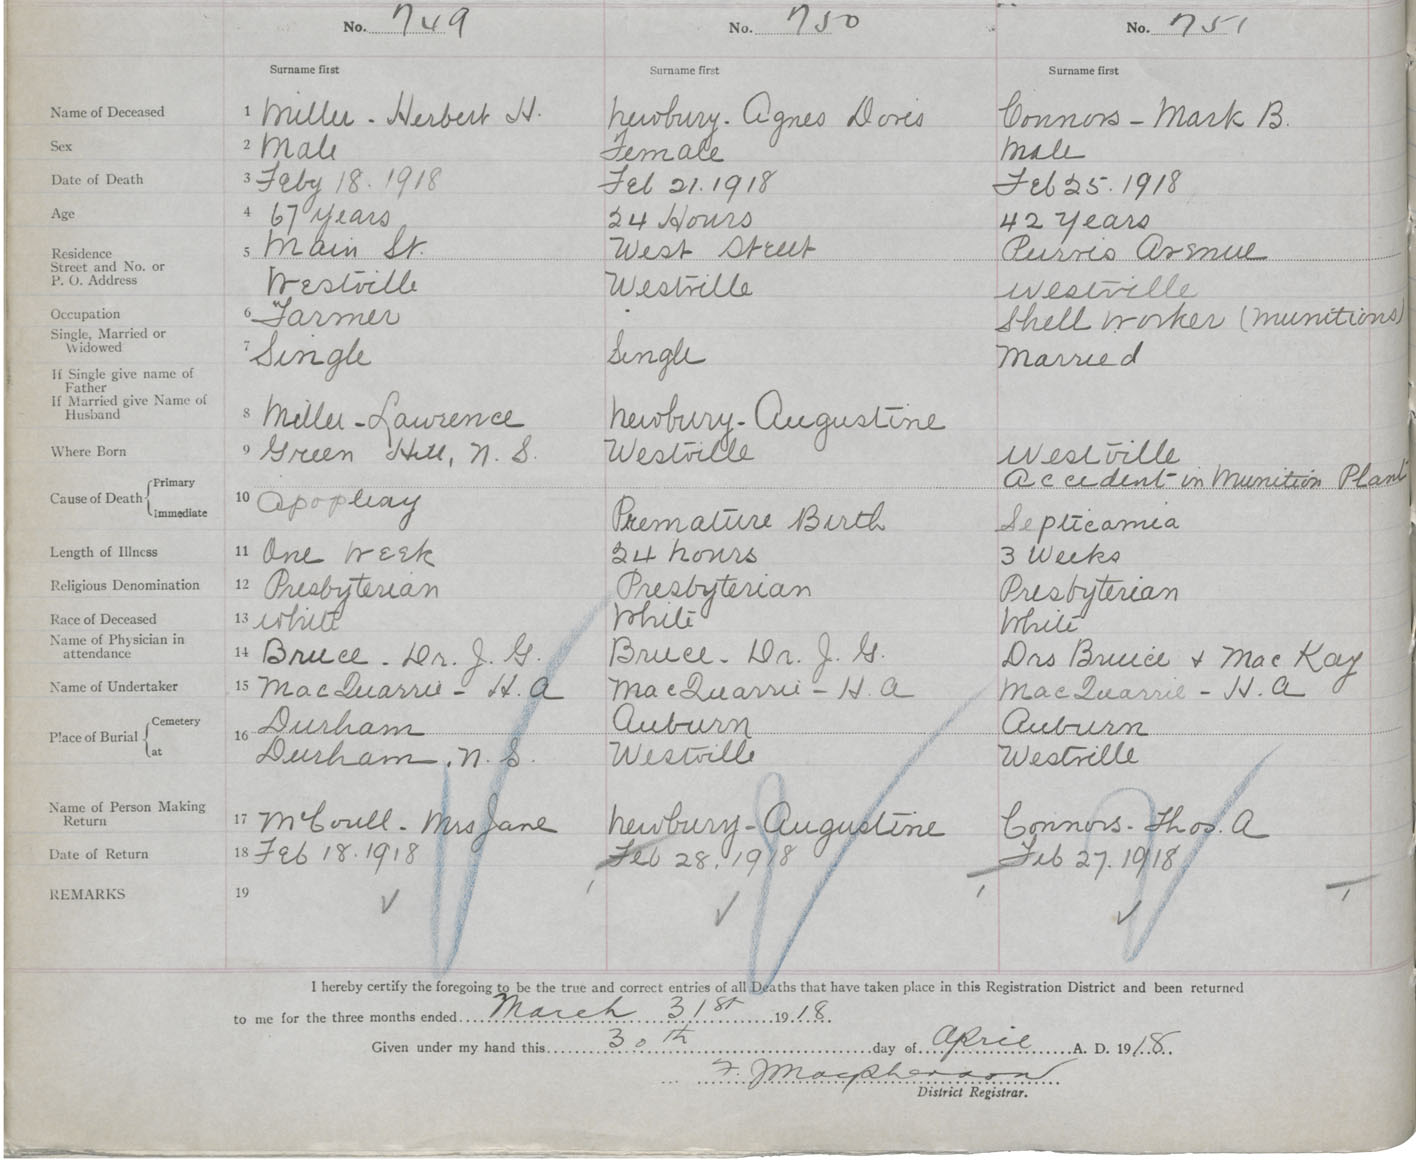 No. 749 No. 750 No. 751
Surname first Surname first Surname first
Name of Deceased 1 Miller - Herbert H. Newbury - Agnes Doris Connors - Mark B.
Sex 2 Male Female Male
Date of Death 3 Feby 18. 1918 Feb 21. 1918 Feb 25. 1918
Age 4 67 Years 24 Hours 42 Years
Residence 5 Main St. West Street Purvis Avenue
Street and No. or
P. O. Address Westville Westville Westville
Occupation 6 Farmer Shell Worker (Munitions)
Single, Married or
Widowed 7 Single Single Married
If Single give name of
Father
If Married give Name of
Husband 8 Miller - Lawrence Newbury - Augustine
Where Born 9 Green Hill, N. S. Westville Westville
Cause of Death Primary Accident in Munition Plant
Immediate 10 Apoplexy Premature Birth Septicamia
Length of Illness 11 One Week 24 hours 3 Weeks
Religious Denomination 12 Presbyterian Presbyterian Presbyterian
Race of Deceased 13 White White White
Name of Physician in
attendance 14 Bruce - Dr. J. G. Bruce - Dr. J. G. Drs Bruice + MacKay
Name of Undertaker 15 MacQuarrie - H. A MacQuarrie - H. A MacQuarrie - H. A
Place of Burial Cemetery 16 Durham Auburn Auburn
at Durham, N. S. Westville Westville
Name of Person Making
Return 17 Mrs Jane Newbury - Augustine Connors - Thos. A
Date of Return 18 Feb 18. 1918 Feb 28, 1918 Feb 27. 1918
REMARKS 19
I hereby certify the foregoing to be the true and correct entries of all Deaths that have taken place in this Registration District and been returned
to me for the three months ended March 31st 1918.
Given under my hand this 30th day of April A. D. 1918.
F. J Macpherson
District Registrar.